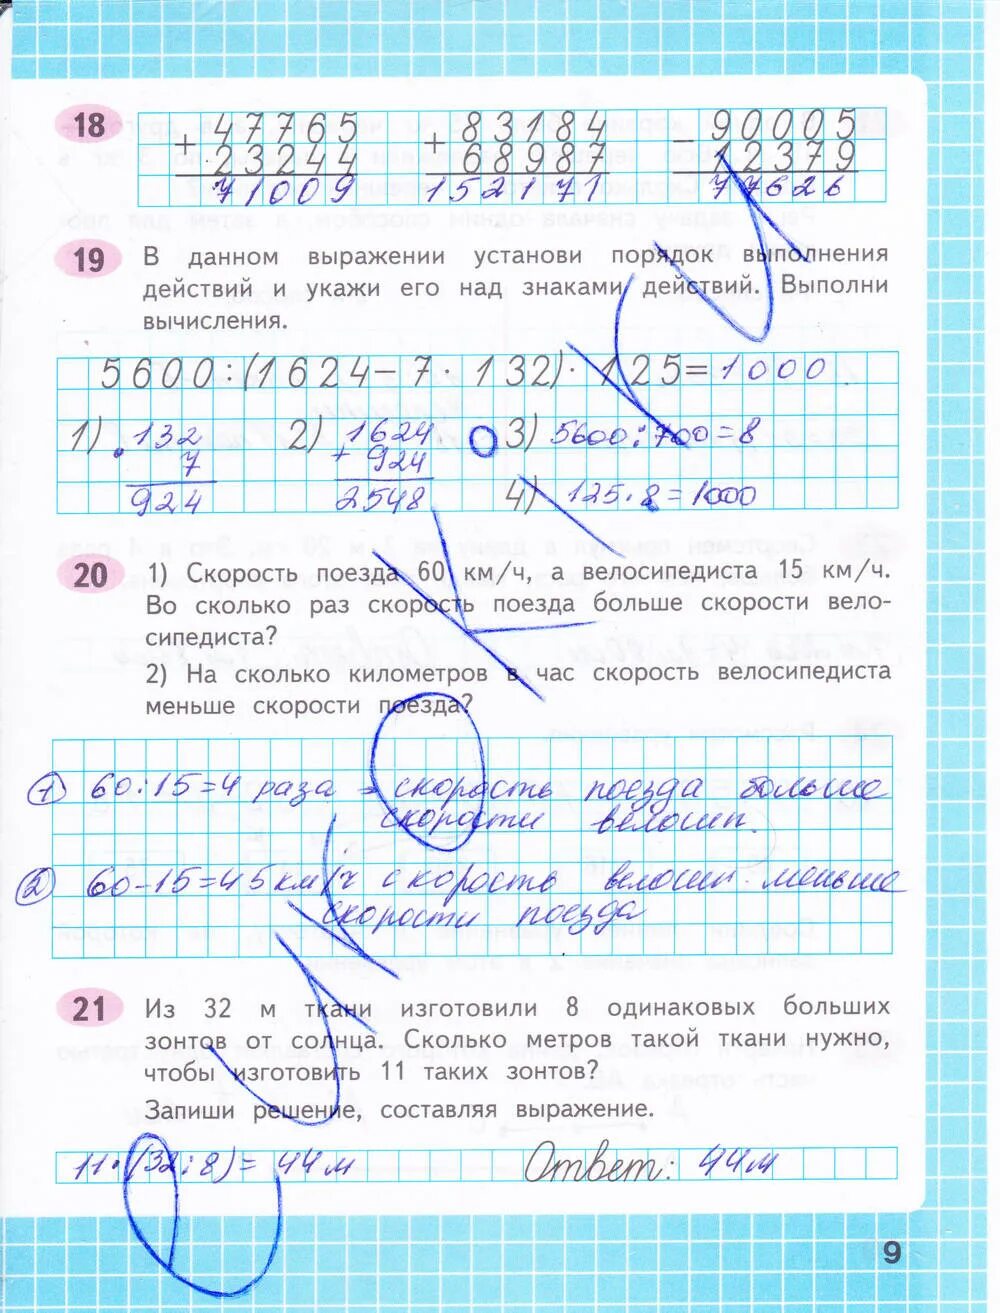 18
47765 83184 90005
+ + -
23244 68987 12379
71009 152171 77626
19 В данном выражении установи порядок выполнения
действий и укажи его над знаками действий. Выполни
вычисления.
5600:(1624-7·132)·125=1000.
1) 132 2) 1624 3) 5600:700=8
· 7 + 924
924 2548 4) 125·8=1000
20 1) Скорость поезда 60 км/ч, а велосипедиста 15 км/ч.
Во сколько раз скорость поезда больше скорости вело-
сипедиста?
2) На сколько километров в час скорость велосипедиста
меньше скорости поезда?
1) 60:15=4 раза - скорость поезда больше
скорости велосип.
2) 60-15=45 км/ч скорость велосип. меньше
скорости поезда
21 Из 32 м ткани изготовили 8 одинаковых больших
зонтов от солнца. Сколько метров такой ткани нужно,
чтобы изготовить 11 таких зонтов?
Запиши решение, составляя выражение.
11·(32:8)=44м Ответ: 44м
9